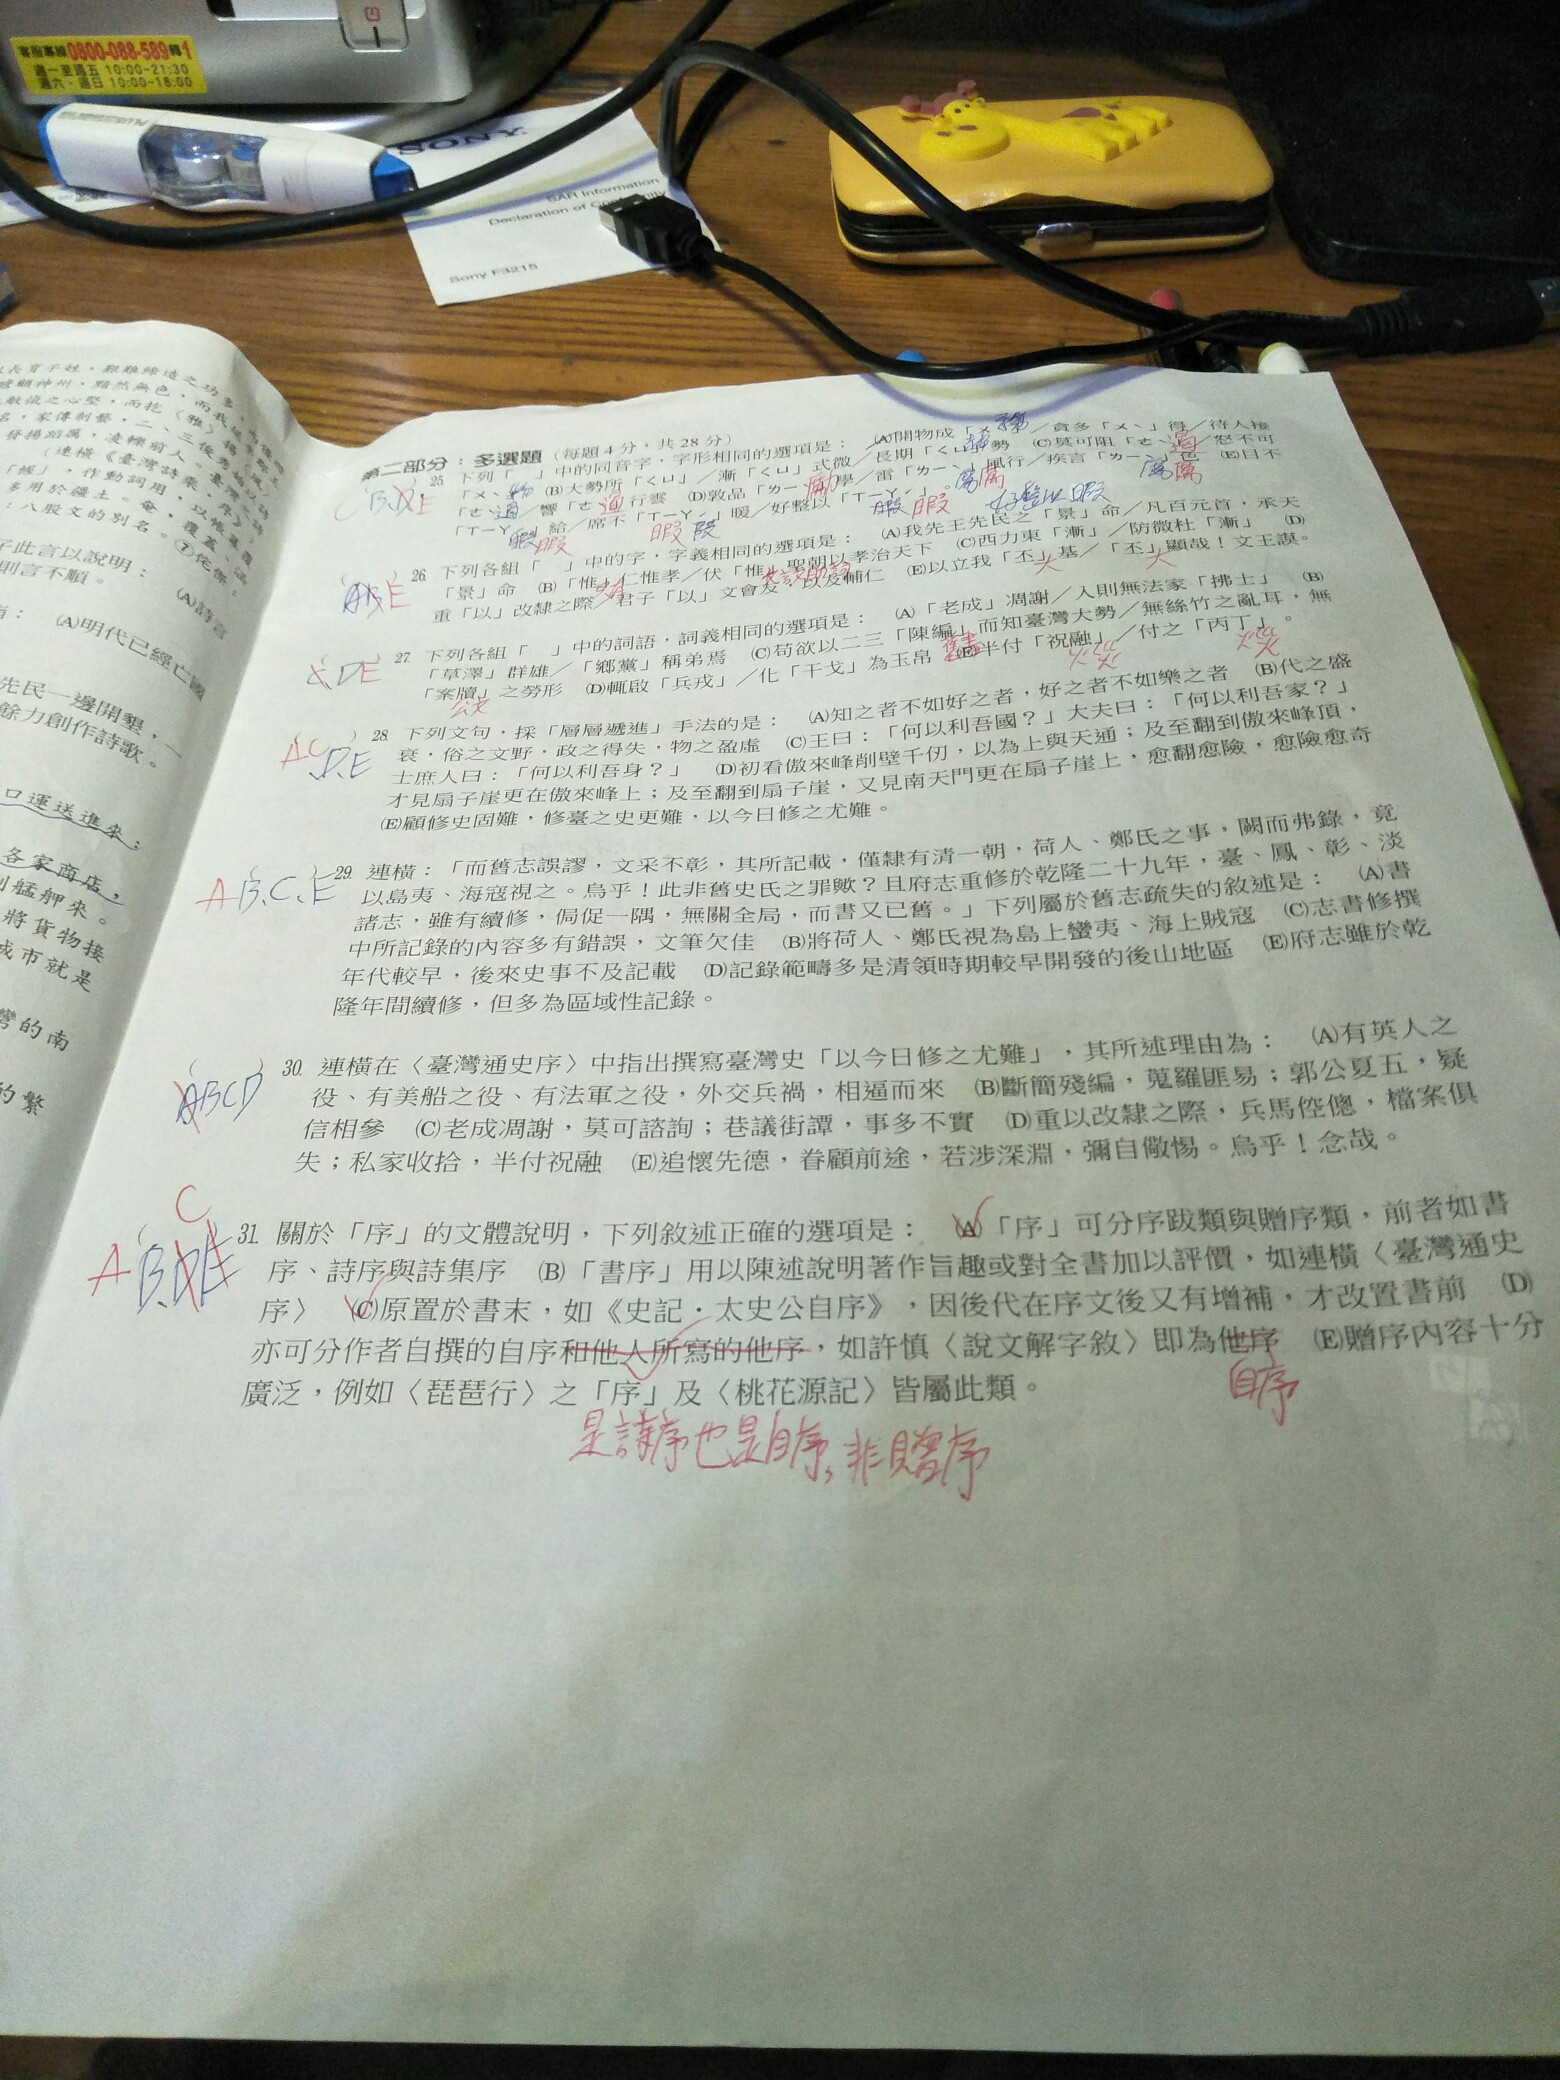 客服專線0800-088-589轉1
週一至週五 10:00~21:30
週六、週日 10:00~18:00
SONY
SAR Information
Declaration of Conformity
Sony F3215
第二部分：多選題（每題4分，共28分）
25. 下列「　」中的同音字，字形相同的選項是： (A)開物成「ㄨˋ」／貪多「ㄨˋ」得／待人接
「ㄨˋ」 (B)大勢所「ㄑㄩ」／漸「ㄑㄩ」式微／長期「ㄑㄩ」勢 (C)莫可阻「ㄜˋ」／怒不可
「ㄜˋ」／響「ㄜˋ」行雲 (D)敦品「ㄌㄧˋ」學／雷「ㄌㄧˋ」風行／疾言「ㄌㄧˋ」色 (E)目不
「ㄒㄧㄚˊ」給／席不「ㄒㄧㄚˊ」暖／好整以「ㄒㄧㄚˊ」。
26. 下列各組「　」中的字，字義相同的選項是： (A)我先王先民之「景」命／凡百元首，承天
「景」命 (B)「惟」仁惟孝／伏「惟」聖朝以孝治天下 (C)西力東「漸」／防微杜「漸」 (D)
重「以」改隸之際／君子「以」文會友，以友輔仁 (E)以立我「丕」基／「丕」顯哉！文王謨。
27. 下列各組「　」中的詞語，詞義相同的選項是： (A)「老成」凋謝／入則無法家「拂士」 (B)
「草澤」群雄／「鄉黨」稱弟焉 (C)苟欲以二三「陳編」而知臺灣大勢／無絲竹之亂耳，無
「案牘」之勞形 (D)輒啟「兵戎」／化「干戈」為玉帛 (E)半付「祝融」／付之「丙丁」。
28. 下列文句，採「層層遞進」手法的是： (A)知之者不如好之者，好之者不如樂之者 (B)代之盛
衰，俗之文野，政之得失，物之盈虛 (C)王曰：「何以利吾國？」大夫曰：「何以利吾家？」
士庶人曰：「何以利吾身？」 (D)初看傲來峰削壁千仞，以為上與天通；及至翻到傲來峰頂，
才見扇子崖更在傲來峰上；及至翻到扇子崖，又見南天門更在扇子崖上，愈翻愈險，愈險愈奇
(E)顧修史固難，修臺之史更難，以今日修之尤難。
A B、C、E 29. 連橫：「而舊志誤謬，文采不彰，其所記載，僅隸有清一朝，荷人、鄭氏之事，闕而弗錄，竟
以島夷、海寇視之。烏乎！此非舊史氏之罪歟？且府志重修於乾隆二十九年，臺、鳳、彰、淡
諸志，雖有續修，侷促一隅，無關全局，而書又已舊。」下列屬於舊志疏失的敘述是： (A)書
中所記錄的內容多有錯誤，文筆欠佳 (B)將荷人、鄭氏視為島上蠻夷、海上賊寇 (C)志書修撰
年代較早，後來史事不及記載 (D)記錄範疇多是清領時期較早開發的後山地區 (E)府志雖於乾
隆年間續修，但多為區域性記錄。
ABCD 30. 連橫在〈臺灣通史序〉中指出撰寫臺灣史「以今日修之尤難」，其所述理由為： (A)有英人之
役、有美船之役、有法軍之役，外交兵禍，相逼而來 (B)斷簡殘編，蒐羅匪易；郭公夏五，疑
信相參 (C)老成凋謝，莫可諮詢；巷議街譚，事多不實 (D)重以改隸之際，兵馬倥傯，檔案俱
失；私家收拾，半付祝融 (E)追懷先德，眷顧前途，若涉深淵，彌自儆惕。烏乎！念哉。
31. 關於「序」的文體說明，下列敘述正確的選項是： (A)「序」可分序跋類與贈序類，前者如書
序、詩序與詩集序 (B)「書序」用以陳述說明著作旨趣或對全書加以評價，如連橫〈臺灣通史
序〉 (C)原置於書末，如《史記·太史公自序》，因後代在序文後又有增補，才改置書前 (D)
亦可分作者自撰的自序和他人所寫的他序，如許慎〈說文解字敘〉即為他序 (E)贈序內容十分
廣泛，例如〈琵琶行〉之「序」及〈桃花源記〉皆屬此類。
自序
是詩序也是自序，非贈序
則言不順。
(A)明代已經亡國
先民一邊開墾，一
餘力創作詩歌。
口運送進來；
各家商店，
到艋舺來。
將貨物接
城市就是
灣的南
的繁